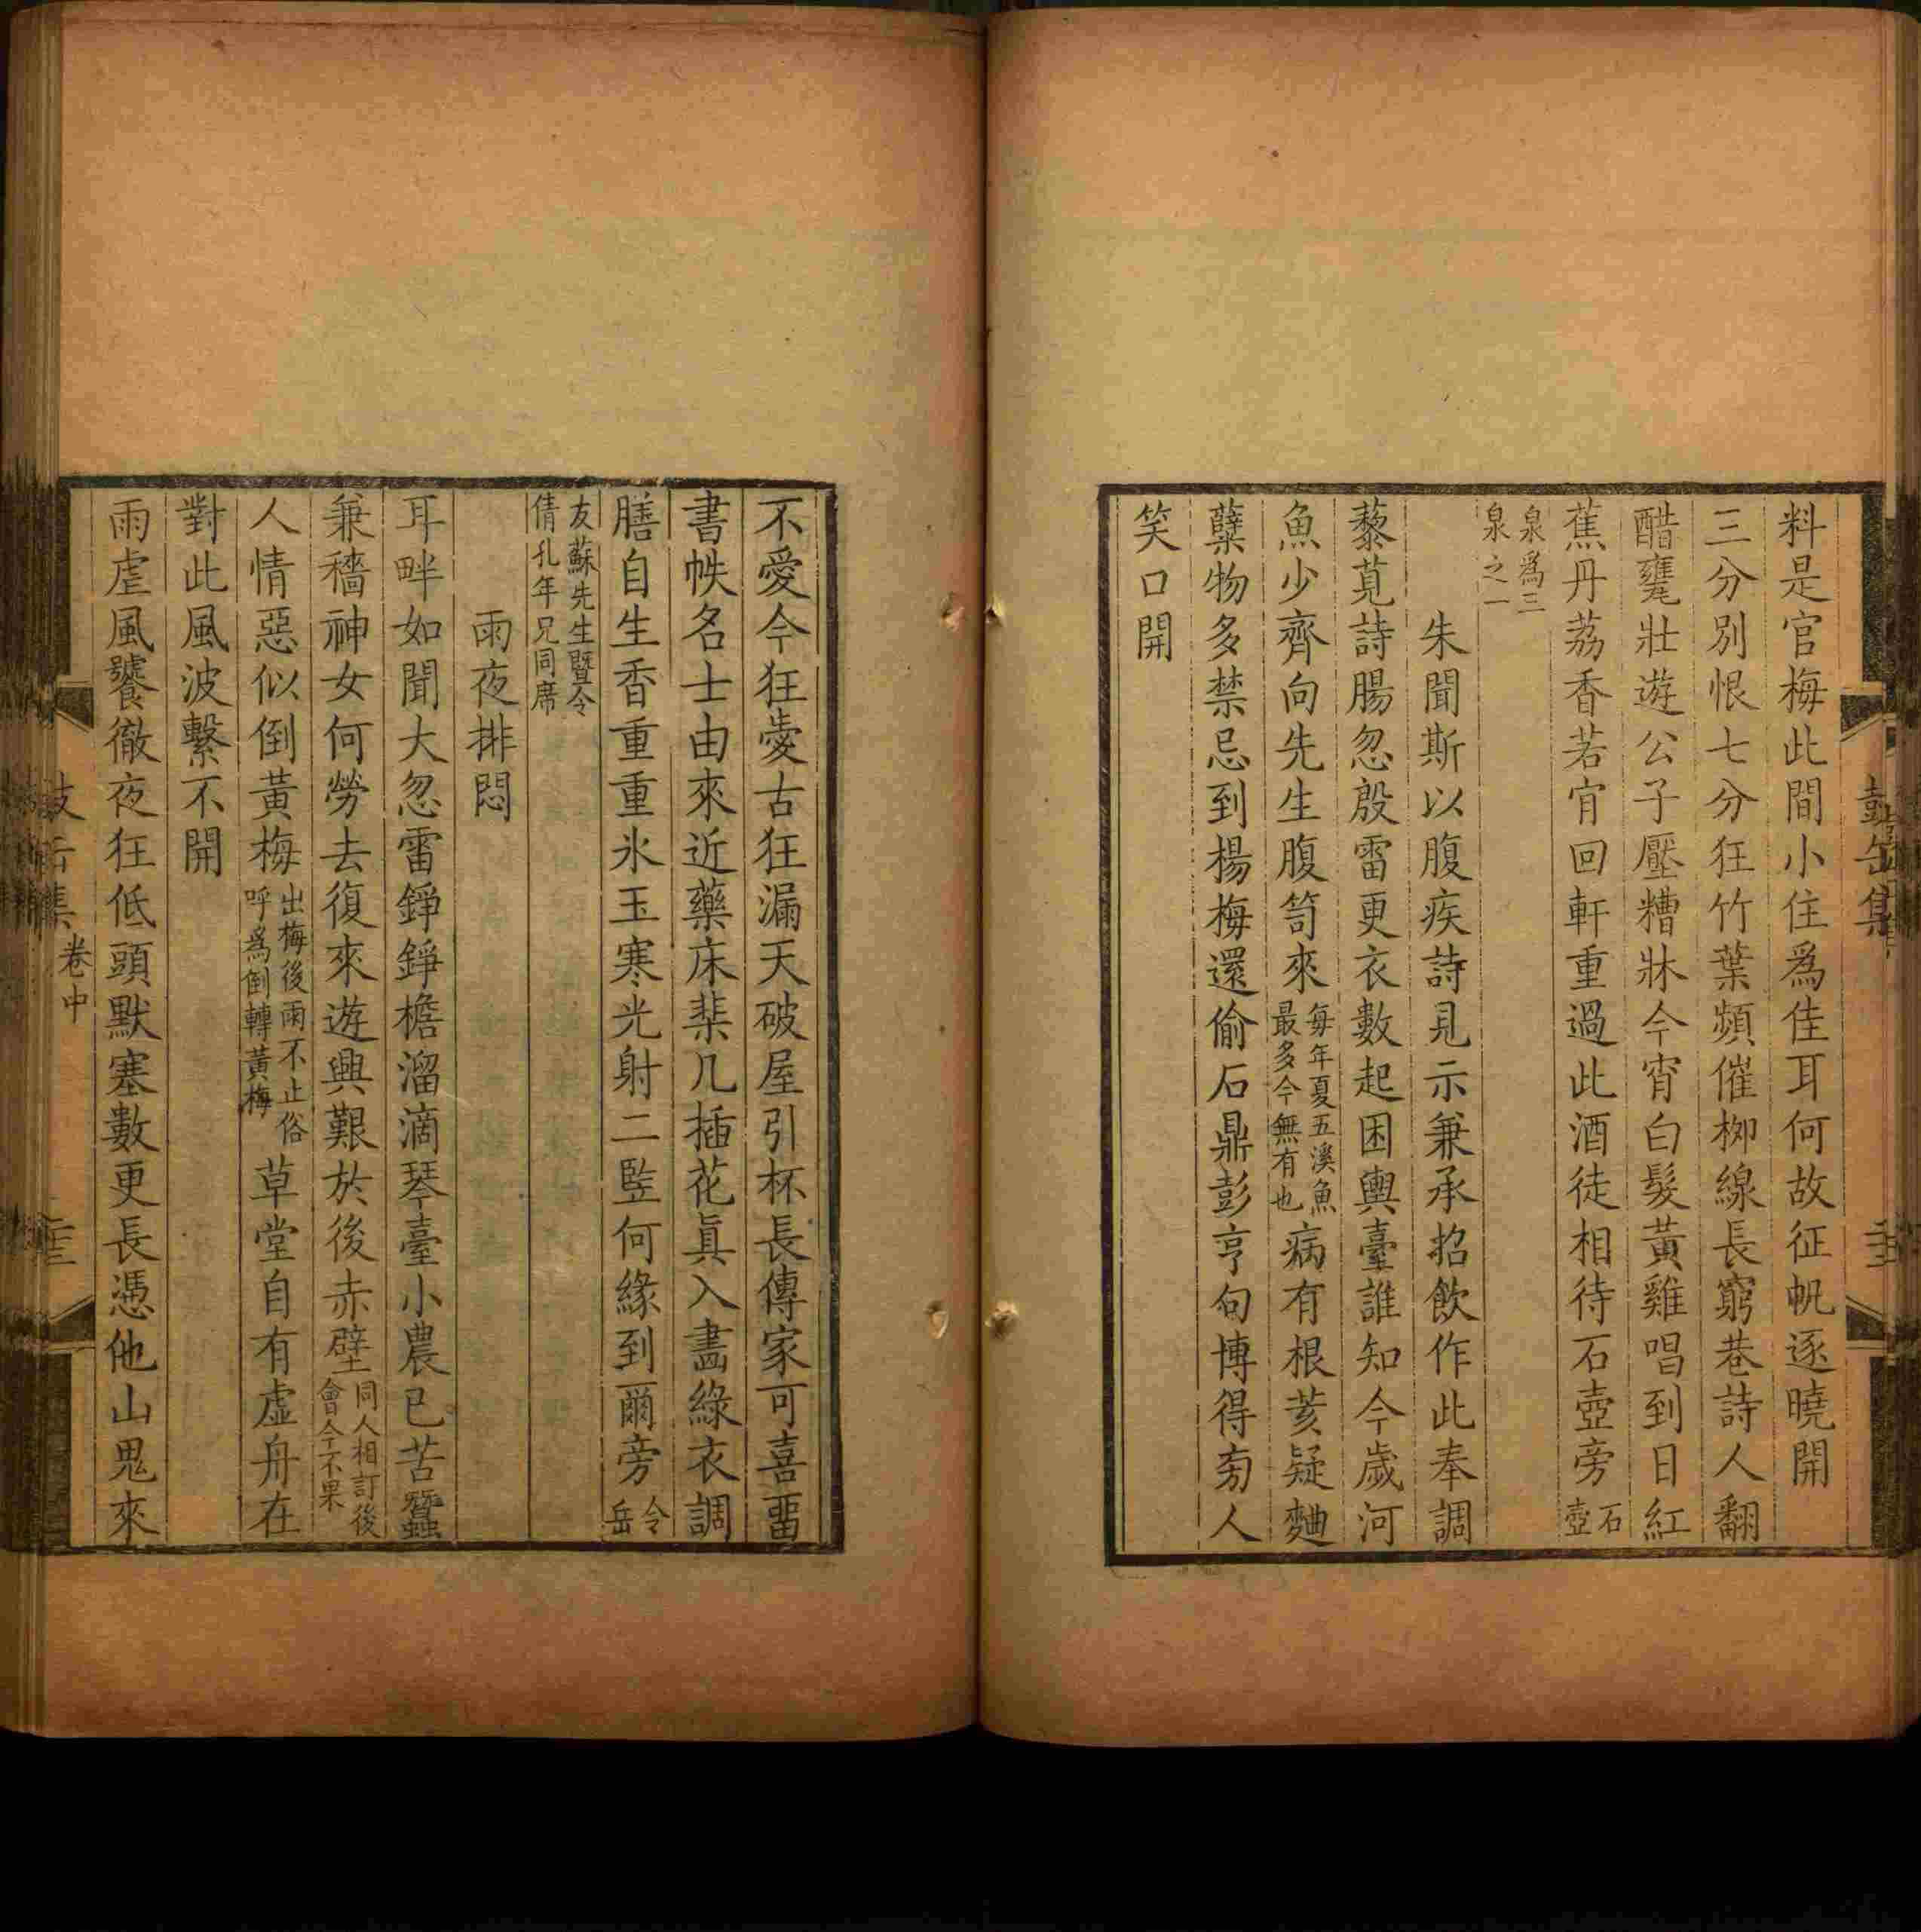 料是官梅此間小住爲佳耳何故征帆逐曉開
三分別恨七分狂竹葉頻催柳線長窮巷詩人翻
醋甕壯遊公子壓糟牀今宵白髮黃雞唱到日紅
蕉丹荔香若宵回軒重過此酒徒相待石壺旁石壺
泉爲三
泉之一
朱聞斯以腹疾詩見示兼承招飲作此奉調
藜莧詩腸忽殷雷更衣數起困輿臺誰知今歲河
魚少齊向先生腹笥來每年夏五溪魚最多今無有也病有根荄疑麯
蘖物多禁忌到楊梅還偷石鼎彭亨句博得旁人
笑口開
不愛今狂愛古狂漏天破屋引杯長傳家可喜畱
書帙名士由來近藥床棐几插花眞入畵綠衣調
膳自生香重重氷玉寒光射二監何緣到爾旁令岳
友蘇先生暨令
倩孔年兄同席
雨夜排悶
耳畔如聞大忽雷錚錚檐溜滴琴臺小農已苦蠶
兼穡神女何勞去復來遊興艱於後赤壁同人相訂後會今不果
人情惡似倒黃梅出梅後雨不止俗呼爲倒轉黃梅草堂自有虛舟在
對此風波繫不開
雨虐風饕徹夜狂低頭默塞數更長憑他山鬼來
卷中